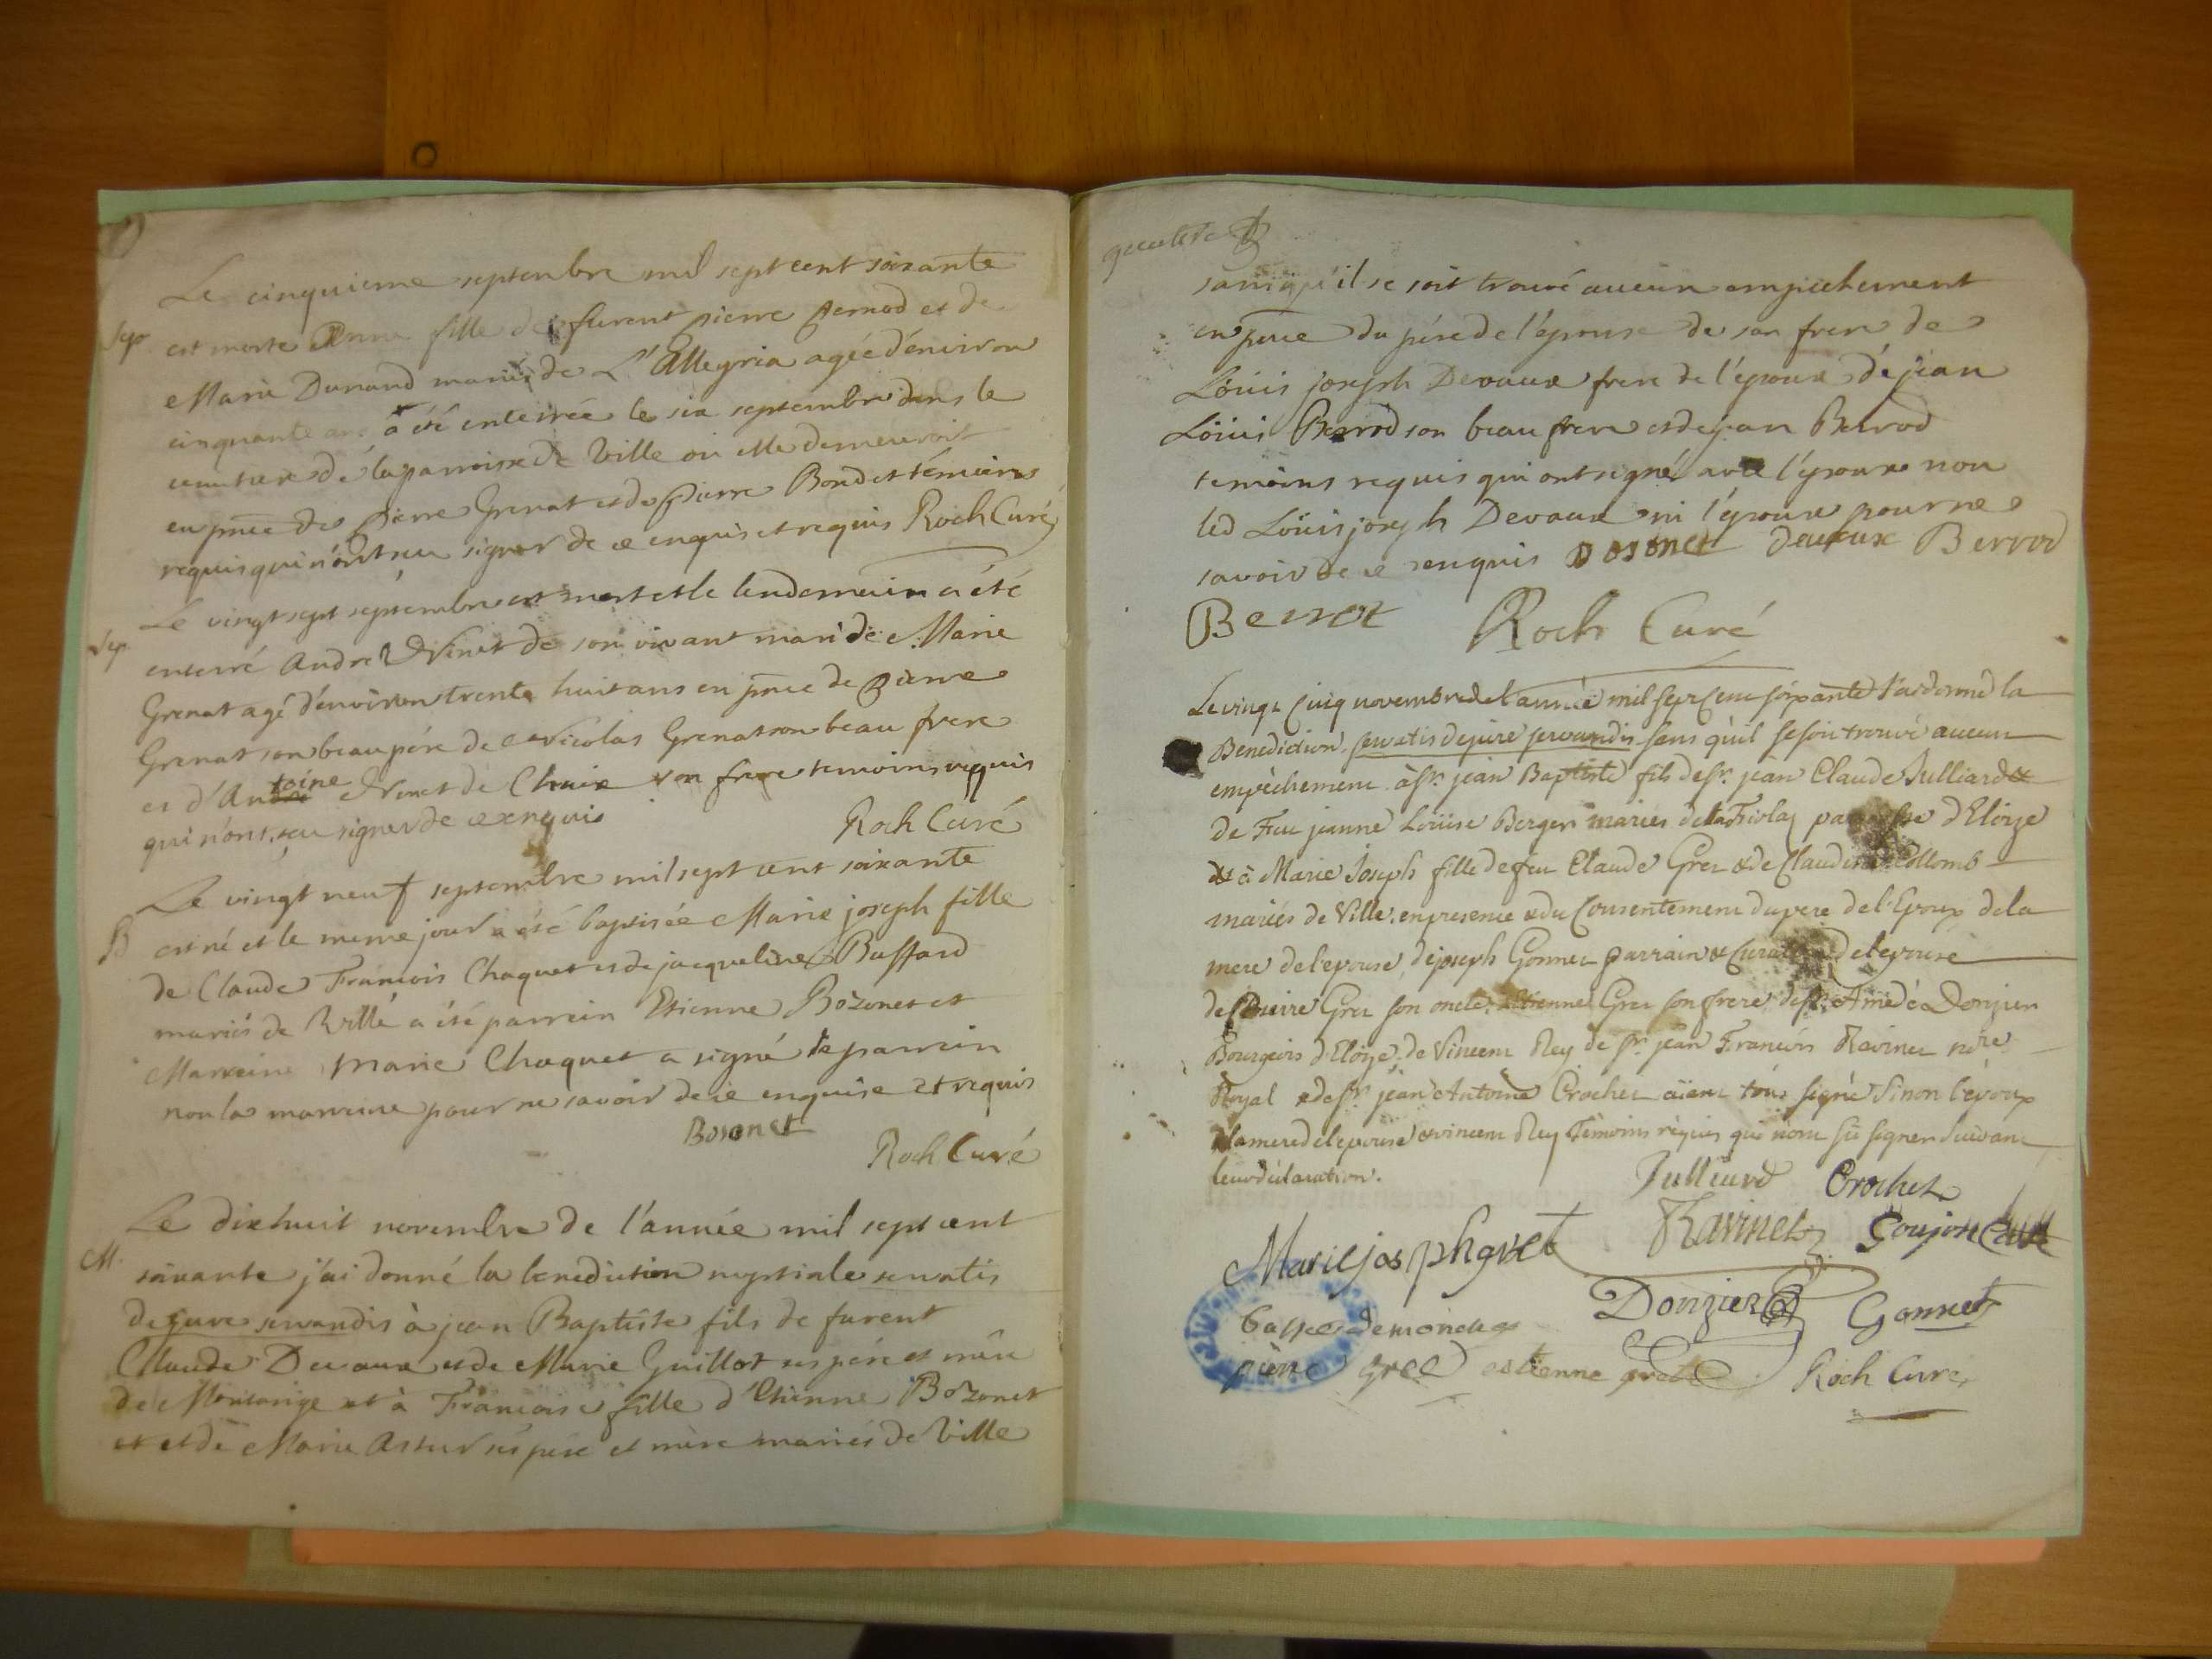 Le cinquieme septembre mil sept cent soixante
Sep. est morte Anne fille de furent pierre pernod et de
Marie Durand mariés de L'Alleyria agée d'environ
cinquante ans a été enterrée le six septembre dans le
cimetiere de la paroisse de Ville où elle demeuroit
en pnce de pierre Grenat et de pierre Bondet témoins
requis qui n'ont seu signer de ce enquis et requis Roch Curé
Le vingt sept septembre est mort et le lendemain a été
Sep. enterré André Ninet de son vivant mari de Marie
Grenat agé d'environ trente huit ans en pnce de pierre
Grenat son beau pére de Nicolas Grenat son beau frere
et d'Antoine Ninet de Chaix son frere temoins requis
qui n'ont seu signer de ce enquis
Roch Curé
Le vingt neuf septembre mil sept cent soixante
B est né et le meme jour a été baptisée Marie joseph fille
de Claude Francois Chaquet et de jacqueline Buffard
mariés de Ville a été parrein Etienne Bozonet et
Marreine Marie Chaquet a signé le parrein
non la marreine pour ne savoir de ce enquise et requis
Bosonet
Roch Curé
Le dixhuit novembre de l'année mil sept cent
M. soixante j'ai donné la benediction nuptiale servatis
de jure servandis à jean Baptiste fils de furent
Claude Devaux et de Marie Guillot ses pére et mére
de Montange et à Francoise fille d'Etienne Bozonet
et et de Marie ses pére et mére mariés de Ville
sans qu'il se soit trouvé aucun empechement
en pnce du pére de l'épouse de son frere de
Loüis joseph Devaux frere de l'époux de jean
Loüis Berrod son beau frere et de jean Berrod
temoins requis qui ont signé avec l'épouse non
led Loüis joseph Devaux ni l'époux pour ne
savoir de ce enquis Bosonet Devaux Berrod
Berrot Roch Curé
Le vingt Cinq novembre de l'année mil sept Cent soixante J'ai donné la
Benediction servatis dejure servandis sans qu'il se soit trouvé aucun
empêchement à Sr. jean Baptiste fils de Sr. jean Claude Julliard &
de Feu jeanne Loüise Berger mariés de la Friolaz paroisse d'Eloize
& à Marie Joseph fille de feu Claude Gret & de Claudine Collomb
mariés de Ville. en presence & du Consentement du pere de l'Epoux de la
mere de l'epouse, de joseph Gonnet parrain & Curateur de l'epouse
de Pierre Gret son oncle, Etienne Gret son frere de Sr. Amedé Donzier
Bourgeois d'Eloize, de Vincent Rey de Sr. jean Francois Ravinet nore
Royal & de Sr. jean Antoine Crochet aïant tous signé Sinon l'époux
la mere de l'epouse & vincent Rey Témoins requis qui n'ont sû signer Suivant
leur déclaration.
Julliard Crochet
Marie josph gret Ravinet Goujon Curé
Donzier Gonnet
piere gret estienne gret Roch Curé